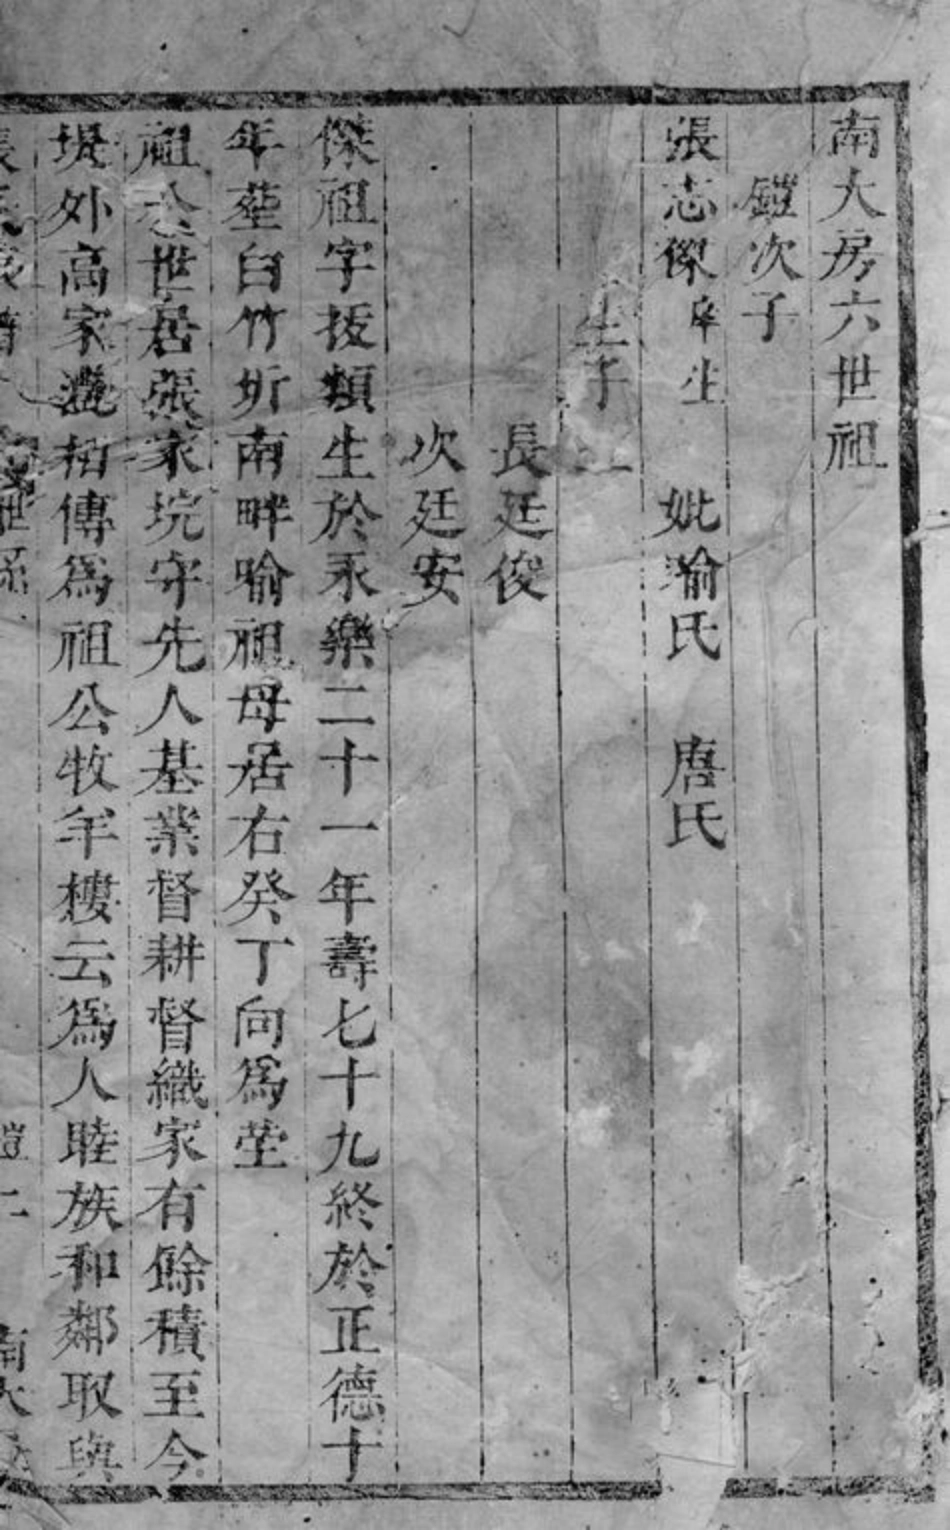 南大房六世祖
鎧次子
張志傑庠生 妣喻氏 唐氏
生子二
長廷俊
次廷安
傑祖字拔類生於永樂二十一年壽七十九終於正德十
年塟白竹圻南畔喻祖母居右癸丁向爲塋
祖公世居張家垸守先人基業督耕督織家有餘積至今
堤外高家灣相傳爲祖公牧羊樓云爲人睦族和鄰取與